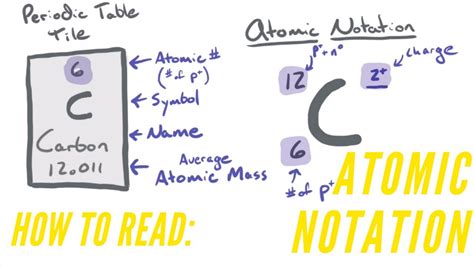 Periodic Table
Tile
6
C
Carbon
12.011
Atomic #
(# of p⁺)
Symbol
Name
Average
Atomic Mass
Atomic Notation
p⁺+n⁰
charge
12
2⁺
C
6
# of p⁺
HOW TO READ:
ATOMIC
NOTATION